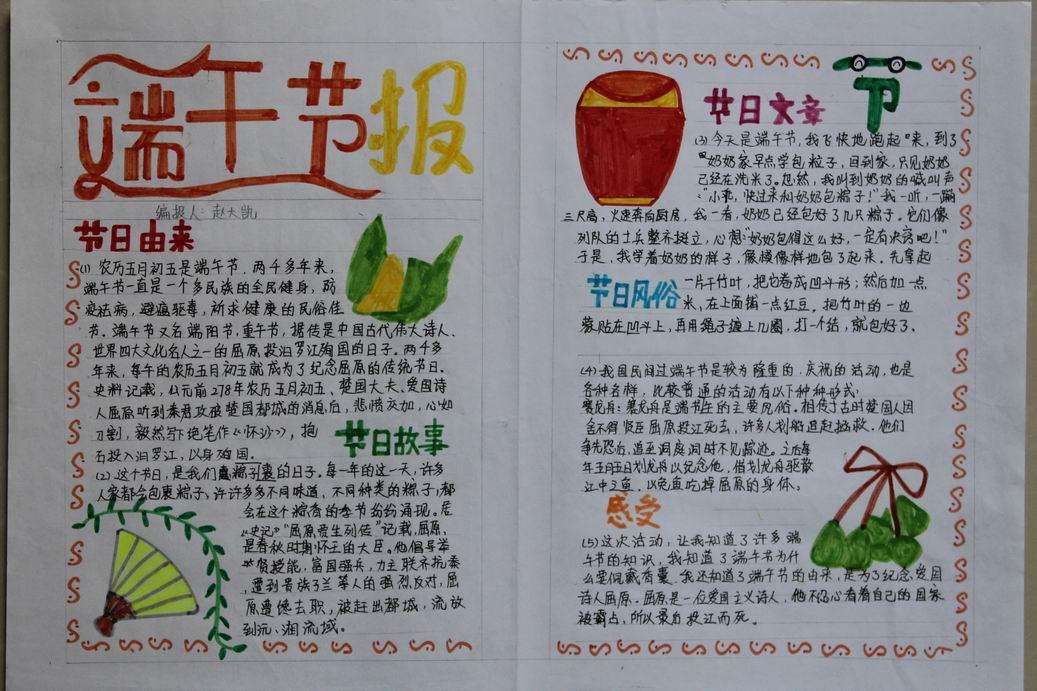 端午节报
编报人：赵天凯
节日由来
(1) 农历五月初五是端午节，两千多年来，
端午节一直是一个多民族的全民健身，防
疫祛病，避瘟驱毒，祈求健康的民俗佳
节。端午节又名端阳节，重午节，据传是中国古代伟大诗人、
世界四大文化名人之一的屈原投汨罗江殉国的日子。两千多
年来，每年的农历五月初五就成为了纪念屈原的传统节日。
史料记载，公元前278年农历五月初五，楚国大夫、爱国诗
人屈原听到秦君攻破楚国都城的消息后，悲愤交加，心如
刀割，毅然写下绝笔作《怀沙》，抱
石投入汨罗江，以身殉国。
节日故事
(2) 这个节日，是我们裹粽子的日子。每一年的这一天，许多
人家都会包裹粽子，许许多多不同味道，不同种类的粽子，都
会在这个粽香的季节纷纷涌现。据
《史记》"屈原贾生列传"记载，屈原，
是春秋时期怀王的大臣。他倡导举
贤授能，富国强兵，力主联齐抗秦
，遭到贵族子兰等人的强烈反对，屈
原遭馋去职，被赶出都城，流放
到沅、湘流域。
节
节日文章
(3) 今天是端午节，我飞快地跑起来，到了
奶奶家早点学包粽子，回到家，只见奶奶
已经在洗米了。忽然，我叫到奶奶的喊叫声
："小乖，快过来叫奶奶包粽子！"我一听，一蹦
三尺高，火速奔向厨房，我一看，奶奶已经包好了几只粽子。它们像
列队的士兵整齐挺立，心想："奶奶包得这么好，一定有诀窍吧！"
于是，我学着奶奶的样子，像模像样地包了起来，先拿起
节日风俗
一片干竹叶，把它卷成凹斗形；然后加一点
米，在上面铺一点红豆。把竹叶的一边
紧贴在凹斗上，再用绳子缠上几圈，打一个结，就包好了。
(4) 我国民间过端午节是较为隆重的，庆祝的活动，也是
各种各样，比较普通的活动有以下种种形式：
赛龙舟：赛龙舟是端午节的主要风俗。相传于古时楚国人因
舍不得贤臣屈原投江死去，许多人划船追赶拯救。他们
争先恐后，追至洞庭湖时不见踪迹。之后每
年五月五日划龙舟以纪念他，借划龙舟驱散
江中之鱼，以免鱼吃掉屈原的身体。
感受
(5) 这次活动，让我知道了许多端
午节的知识，我知道了端午节为什
么要佩戴香囊。我还知道了端午节的由来，是为了纪念爱国
诗人屈原。屈原是一位爱国主义诗人，他不忍心看着自己的国家
被霸占，所以最后投江而死。